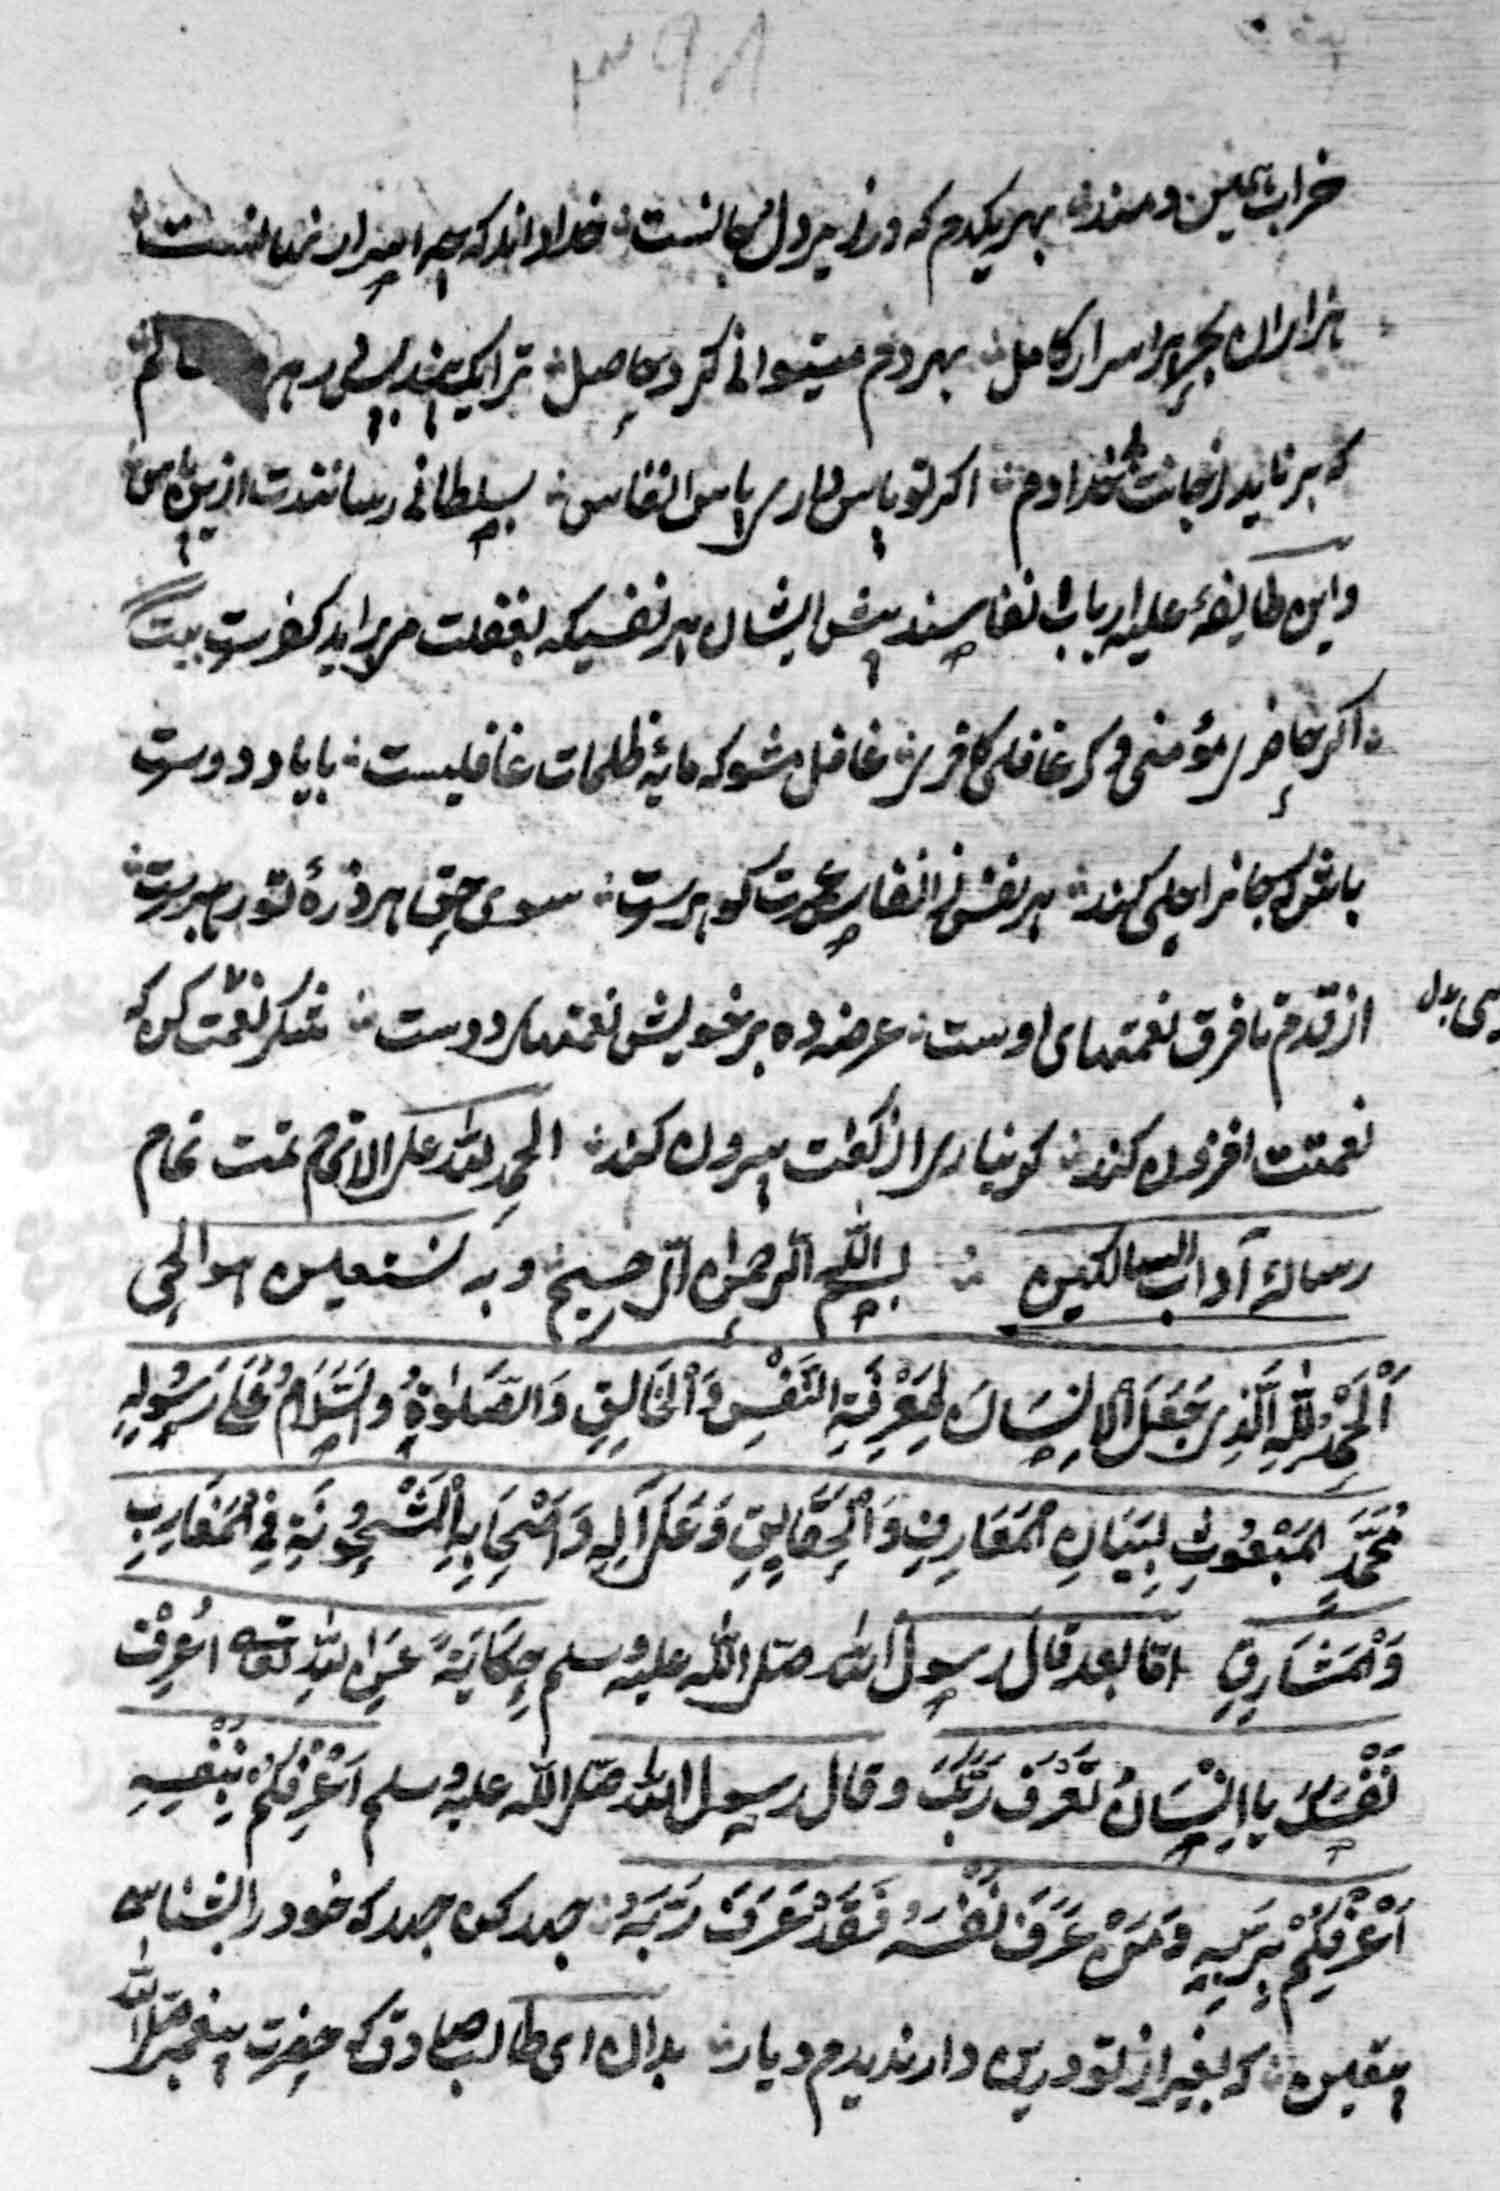 بهر یکدم که در زیر دل جانست خدا داند که چه اسرار نهانست
هزاران بحر پر اسرار کامل بهر دم میتوانی کرد حاصل ترا یک پند بس در هر عالم
که بر ناید ز جانت بیخدا دم اکر تو پاس داری پاس انفاس بسلطانی رسانندت ازین پاس
و این طایفهٔ علیه ارباب انفاسند پیش ایشان هر نفسیکه بغفلت می براید کفرست بیت
اکر حاضری مؤمنی و کر غافلی کافری غافل مشو که مایهٔ ظلمات غافلیست با یاد دوست
باش که جانرا جلی کند هر نفس ز انفاس عمرت کوهرست سوی حق هر ذرهٔ تو رهبرست
از قدم تا فرق نعمتهای اوست عرضه ده بر خویش نعمتهای دوست شکر نعمت کن که
نعمتت افزون کند کو نیاری از کفت بیرون کند الحمد لله علی الاتمام تمت تمام
رسالهٔ آداب السالکین بسم الله الرحمن الرحیم و به نستعین هو الحی
اَلْحَمْدُ لِلّٰهِ الَّذِی جَعَلَ الْاِنْسَانَ لِمَعْرِفَةِ النَّفْسِ وَالْخَالِقِ وَالصَّلٰوةُ وَالسَّلَامُ عَلٰی رَسُولِهِ
مُحَمَّدٍ الْمَبْعُوثِ لِبَیَانِ الْمَعَارِفِ وَالْحَقَایِقِ وَعَلٰی آلِهِ وَاَصْحَابِهِ الْمَشْحُونَةِ فِی الْمَغَارِبِ
وَالْمَشَارِقِ اما بعد قال رسول الله صلی الله علیه و سلم حِکَایَةً عَنِ اللهِ تعالی اعْرِفْ
نَفْسَکَ یا اِنْسَانُ تَعْرَفْ رَبَّکَ و قال رسول الله صلی الله علیه و سلم اَعْرَفُکُمْ بِنَفْسِهِ
اَعْرَفُکُمْ بِرَبِّهِ وَمَنْ عَرَفَ نَفْسَهُ فَقَدْ عَرَفَ رَبَّهُ جهد کن جهد که خود را بشناس
بیقین که بغیر از تو درین دار ندیدم دیار بدان ای طالب صادق که حضرت پیغمبر صلی الله